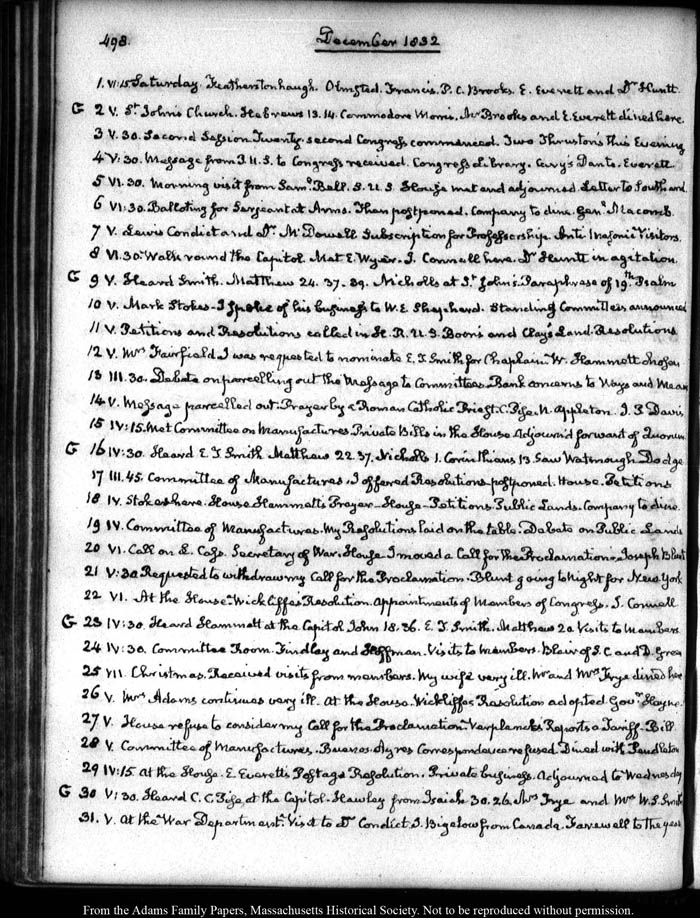 498.
December 1832
1. VI:15 Saturday. Featherstonhaugh. Olmsted. Francis. P. C. Brooks. E. Everett and Dr. Huntt.
G 2 V. St. Johns Church. Hebrews 13. 14. Commodore Morris. Mr Brooks and E. Everett dined here.
3 V. 30. Second Session Twenty-second Congress commenced. Two Thruston's this Evening
4 V:30. Message from P. U. S. to Congress received. Congress Library. Cary's Dante. Everett
5 VI. 30. Morning visit from Saml. Bell. S. U. S. House met and adjourned. Letter to Southard.
6 VI:30. Balloting for Sergeant at Arms. Then postponed. Company to dine. Genl. Macomb.
7 V. Lewis Condict and Dr. McDowell Subscription for Professorship. Anti Masonic Visitors.
8 VI. 30. Walk round the Capitol. Mat E. Wyer. J. Connell here. Dr Huntt in agitation.
G 9 V. Heard Smith. Matthew 24. 37. 39. Nicholls at St. John's. Paraphrase of 19th Psalm
10 V. Mark Stokes. I spoke of his business to W. E. Shepherd. Standing Committees announced
11 V. Petitions and Resolutions called in H. R. U. S. Boon's and Clay's Land Resolutions
12 V. Mrs Fairfield. I was requested to nominate E. J Smith for Chaplain. W. Hammett chosen
13 III. 30. Debate on parcelling out the Message to Committees. Bank concerns to Ways and Mean
14 V. Message parcelled out. Prayer by a Roman Catholic Priest. C. Pise. N. Appleton. J. Davis
15 IV:15. Met Committee on Manufactures Private Bills in the House Adjourn'd for want of Quorum
G 16 IV:30. Heard E. J Smith Matthew 22. 37. Nicholls 1. Corinthians 13. Saw Watmough. Dodge
17 III. 45. Committee of Manufactures. I offered Resolutions postponed. House. Petitions
18 IV. Stokes here. House Hammett's Prayer. House. Petitions. Public Lands. Company to dine.
19 IV. Committee of Manufactures. My Resolutions laid on the table. Debate on Public Lands
20 VI. Call on L. Cass. Secretary of War. House. I moved a Call for the Proclamation. Joseph Blunt
21 V:30 Requested to withdraw my Call for the Proclamation. Blunt going to Night for New York
22 VI. At the House. Wickliffes Resolution. Appointments of Members of Congress. J. Connell
G 23 IV:30. Heard Hammett at the Capitol John 18. 36. E. J. Smith. Matthew 20. Visits to Members
24 IV:30. Committee Room. Findlay and Hoffman. Visits to Members. Blair of S. C. and D. Green
25 VII. Christmas. Received visits from members. My wife very ill. Mr and Mrs Frye dined here
26 V. Mrs. Adams continues very ill. At the House. Wickliffes Resolution adopted Govr. Hayne.
27 V. House refuse to consider my Call for the Proclamation. Verplanck's Reports a Tariff-Bill.
28 V. Committee of Manufactures. Buenos-Ayres Correspondence refused. Dined with Pendleton
29 IV:15 At the House. E. Everett's Postage Resolution. Private business. Adjourned to Wednesday
G 30 V:30. Heard C. C Pise at the Capitol. Hawley from Isaiah 30. 26. Mrs Frye and Mrs W. S. Smith
31. V. At the War Department. Visit to Dr Condict. J. Bigelow from Canada. Farewell to the year
From the Adams Family Papers, Massachusetts Historical Society. Not to be reproduced without permission.